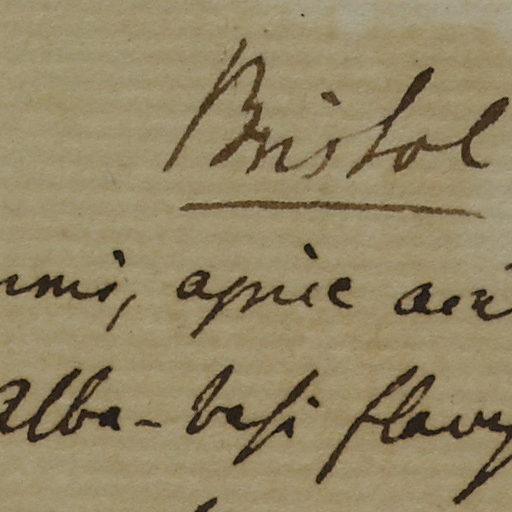 Bristol
apice
alba - basi flav